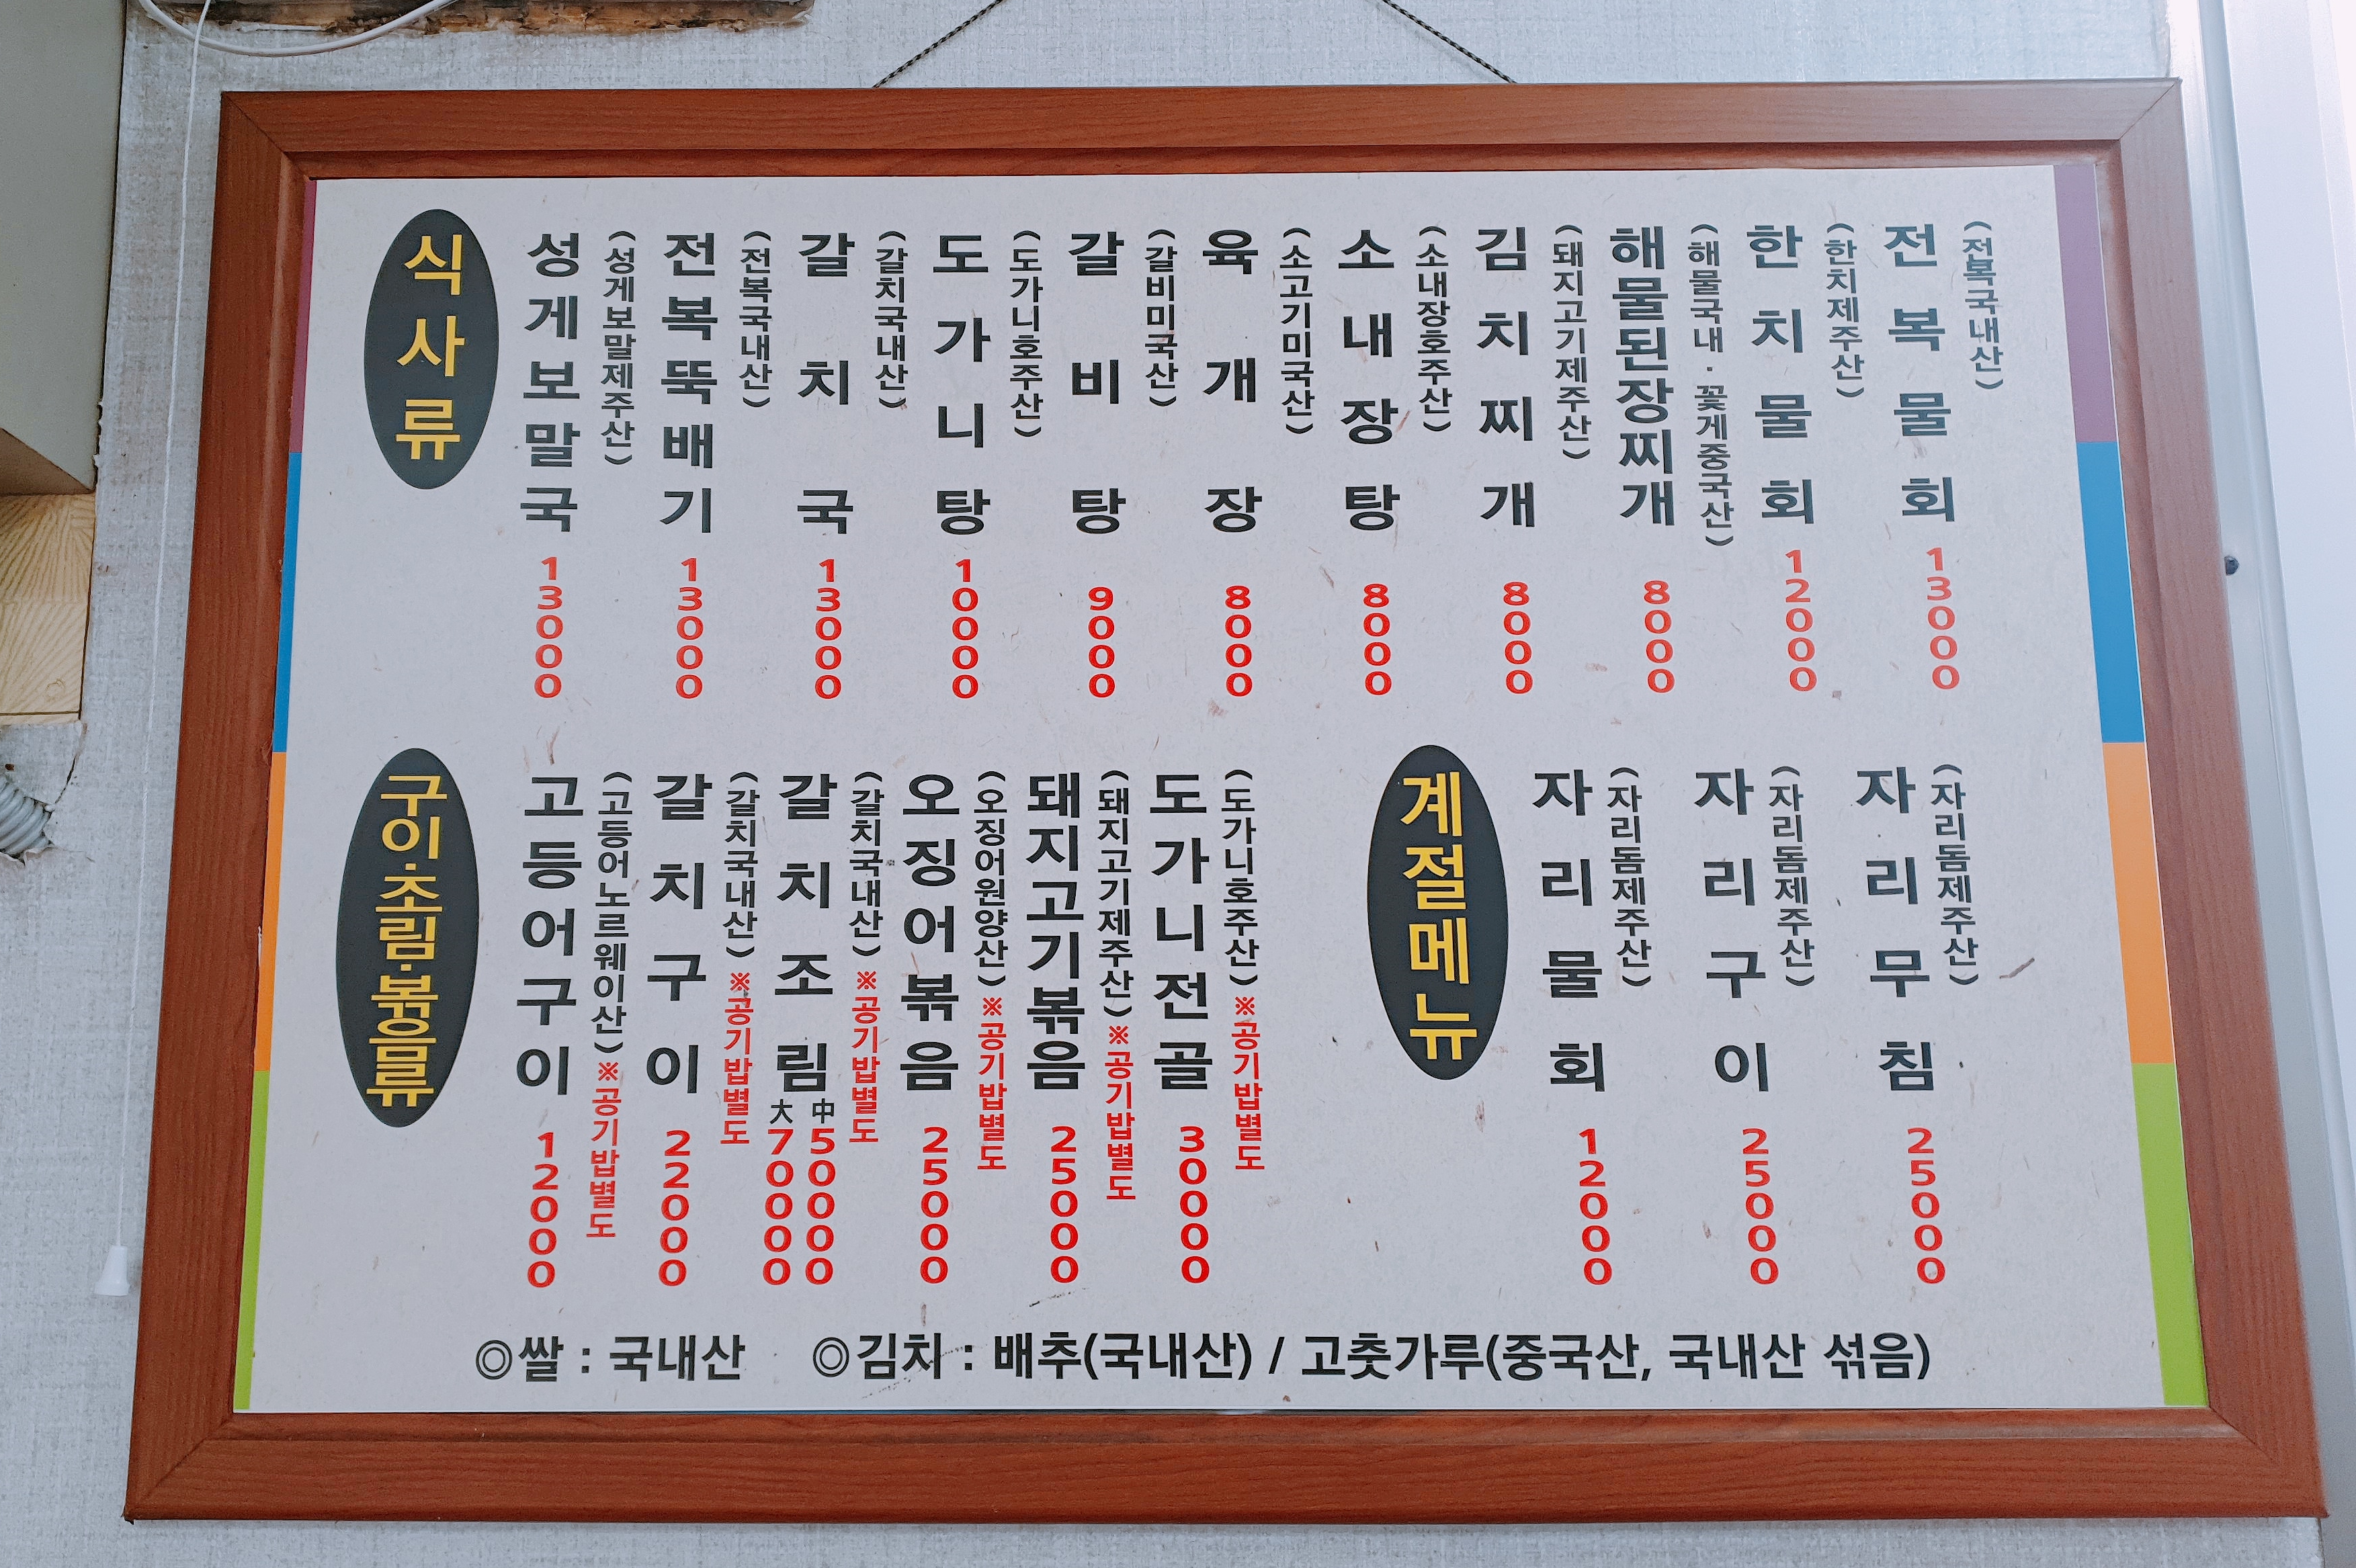 식사류
성게보말국 13000
(성게보말제주산)
전복뚝배기 13000
(전복국내산)
갈치국 13000
(갈치국내산)
도가니탕 10000
(도가니호주산)
갈비탕 9000
(갈비미국산)
육개장 8000
(소고기미국산)
소내장탕 8000
(소내장호주산)
김치찌개 8000
(돼지고기제주산)
해물된장찌개 8000
(해물국내·꽃게중국산)
한치물회 12000
(한치제주산)
전복물회 13000
(전복국내산)
구이·조림·볶음류
고등어구이 12000
(고등어노르웨이산)※공기밥별도
갈치구이 22000
(갈치국내산)※공기밥별도
갈치조림 大70000 中50000
(갈치국내산)※공기밥별도
오징어볶음 25000
(오징어원양산)※공기밥별도
돼지고기볶음 25000
(돼지고기제주산)※공기밥별도
도가니전골 30000
(도가니호주산)※공기밥별도
계절메뉴
자리물회 12000
(자리돔제주산)
자리구이 25000
(자리돔제주산)
자리무침 25000
(자리돔제주산)
◎쌀 : 국내산 ◎김치 : 배추(국내산) / 고춧가루(중국산, 국내산 섞음)